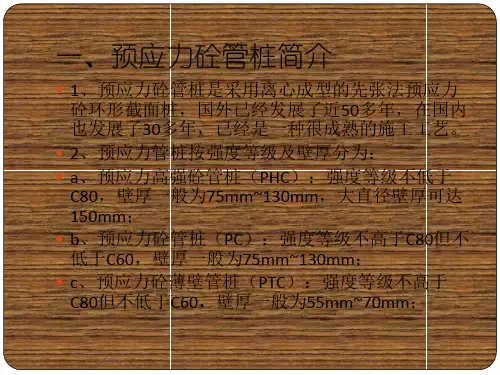 一、预应力砼管桩简介
1、预应力砼管桩是采用离心成型的先张法预应力
砼环形截面桩，国外已经发展了近50多年，在国内
也发展了30多年，已经是一种很成熟的施工工艺。
2、预应力管桩按强度等级及壁厚分为：
a、预应力高强砼管桩（PHC）：强度等级不低于
C80，壁厚一般为75mm~130mm，大直径壁厚可达
150mm；
b、预应力砼管桩（PC）：强度等级不高于C80但不
低于C60，壁厚一般为75mm~130mm；
c、预应力砼薄壁管桩（PTC）：强度等级不高于
C80但不低于C60，壁厚一般为55mm~70mm；